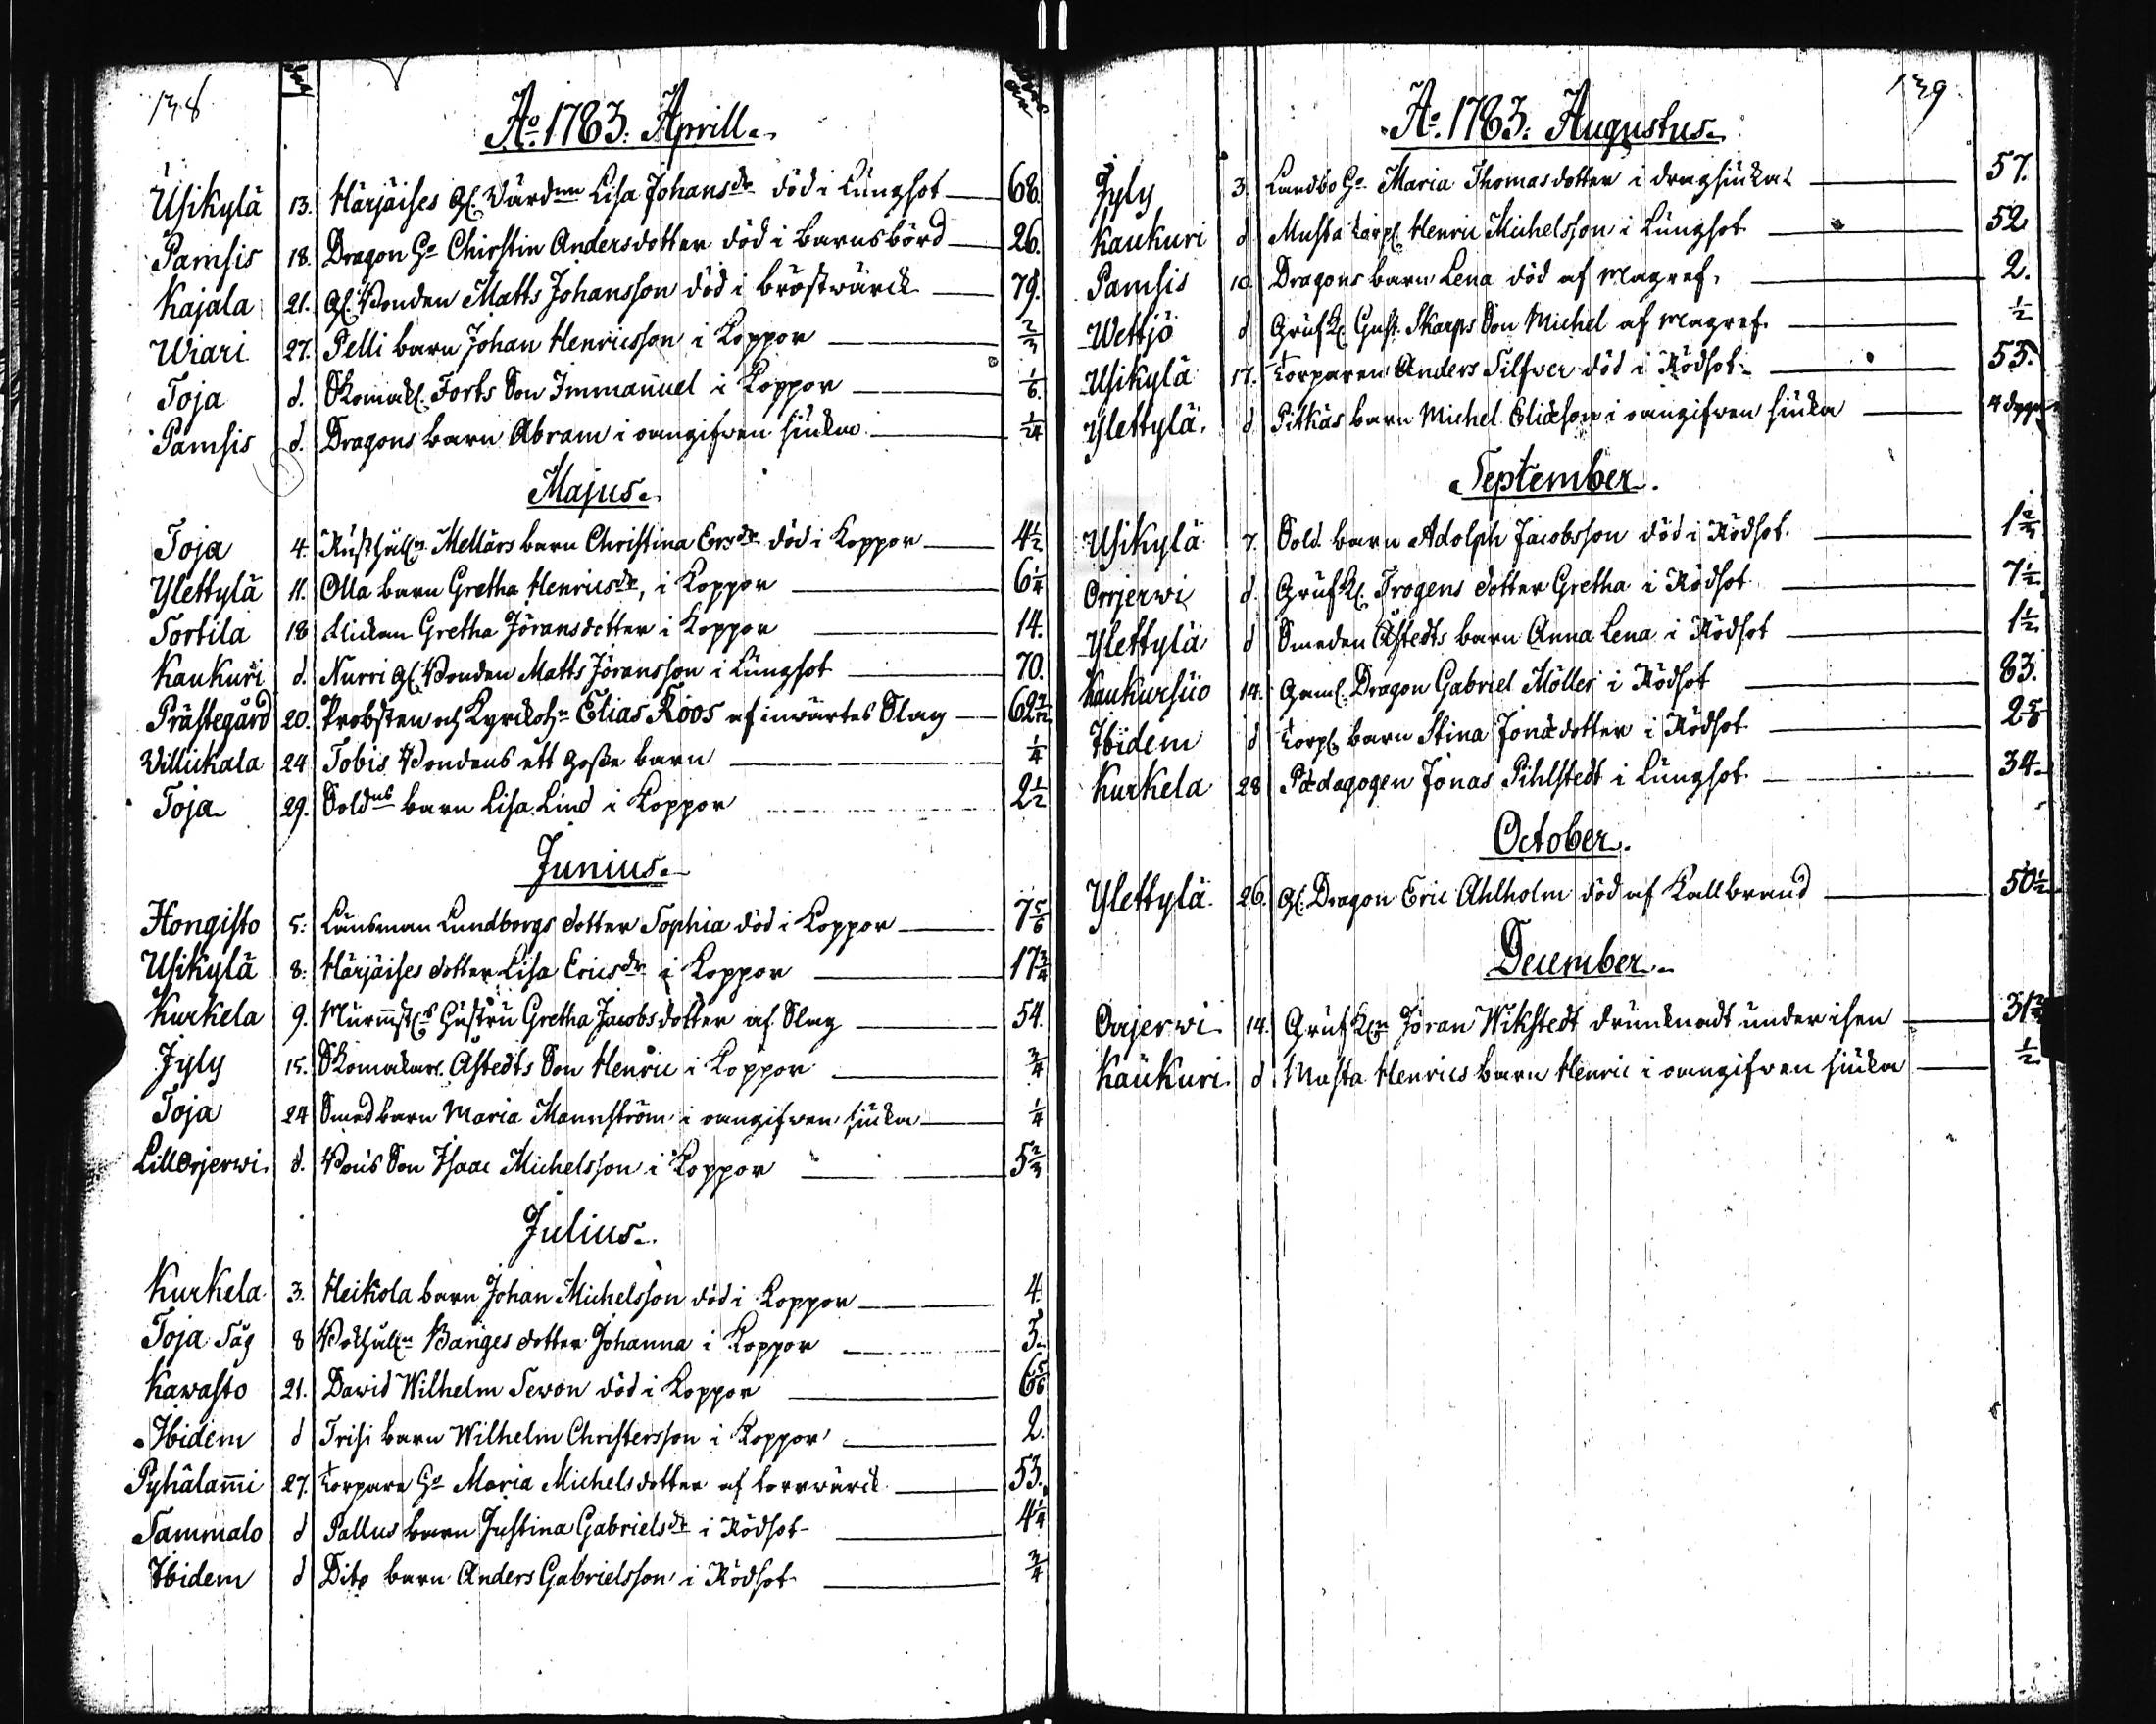 138
Ao. 1783. Aprill.
Usikylä 13. Härjäises gl. Värdnn Lisa Johansdr död i Lungsot 68.
Pamsis 18. Dragon Ho Chirstin Andersdotter död i Barnsbörd 26.
Kajala 21. gl. Bonden Matts Johansson död i bröstwärck 79.
Wiari 27. Pelli barn Johan Henricsson i Koppor 2/3
Toja d. Skomak. Forss Son Immanuel i Koppor 1/6.
Pamsis d. Dragons barn Abram i oangifven siuka 1/24
Majus.
Toja 4. Rusthåll. Mellars barn Christina Ersdr död i Koppor 4 1/2
Ylettylä 11. Olla barn Gretha Henricsdr, i Koppor 6 1/4
Tortila 18 flickan Gretha Jöransdotter i Koppor 14.
Kaukuri d. Nurri gl. Bonden Matts Jöransson i Lungsot 70.
Prästegård 20. Probsten och Kyrckoh. Elias Roos af inwärtes Slag 62
Villickala 24 Tobis Bondens ett gosse barn 1/4
Toja 29. Soldns barn Lisa Lind i Koppor 2 1/2
Junius.
Hongisto 5. Länsman Lundborgs dotter Sophia död i Koppor 7 5/6
Usikylä 8. Härjäises dotter Lisa Ericsdr i Koppor 17 3/4
Kurkela 9. Murmst. Hustru Gretha Jacobsdotter af Slag 54.
Jyly 15. Skomakar. Åstedts Son Henric i Koppor 3/4
Toja 24 Smed barn Maria Mannström i oangifven siuka 1/4
Lill Orjerwi d. Pous Son Isaac Michelsson i Koppor 5 2/3
Julius.
Kurkela 3. Heikola barn Johan Michelsson död i Koppor 4.
Toja Såg 8 Bokhåll. Banges dotter Johanna i Koppor 3.
Kawasto 21. David Wilhelm Sewon död i Koppor 6 5/6
Ibidem d Trisi barn Wilhelm Christersson i Koppor 2.
Pyhälammi 27. Torpare Ho Maria Michelsdotter af torrwärck 53.
Sammalo d Pallus barn Justina Gabrielsdr i Rödsot 4 1/4
Ibidem d Dito barn Anders Gabrielsson i Rödsot 3/4
139
Ao. 1783. Augustus.
Jyly 3. Landbo Ho Maria Thomasdotter i dragsiuka 57.
Kaukuri d Musta torp. Henric Michelsson i Lungsot 52
Pamsis 10 Dragons barn Lena död af Magref. 2.
Wettjö d Gruf K. Gust. Skarps Son Michel af Magref. 1/2
Usikylä 17. Torparen Anders Silfver död i Rödsot 55.
Ylettylä d Pitkäs barn Michel Eliæson i oangifven siuka 4 dygn
September.
Usikylä 7. Sold. barn Adolph Jacobsson död i Rödsot. 1 2/3
Orrjerwi d. Gruf K. Trogens dotter Gretha i Rödsot 7 1/2
Ylettylä d Smeden Åstedts barn Anna Lena i Rödsot 1 1/2
Kaukursuo 14. Gaml. Dragon Gabriel Möller i Rödsot 83.
Ibidem d Torp. barn Stina Jonædotter i Rödsot 2
Kurkela 28 Pædagogen Jonas Pihlstedt i Lungsot 34.
October.
Ylettylä 26. gl. Dragon Eric Ahlholm död af Kallbrand 50 1/2
December.
Orrjerwi 14. Gruf K. Jöran Wikstedt drunknadt under isen 31
Kaukuri d Musta Henrics barn Henric i oangifven siuka 1/2